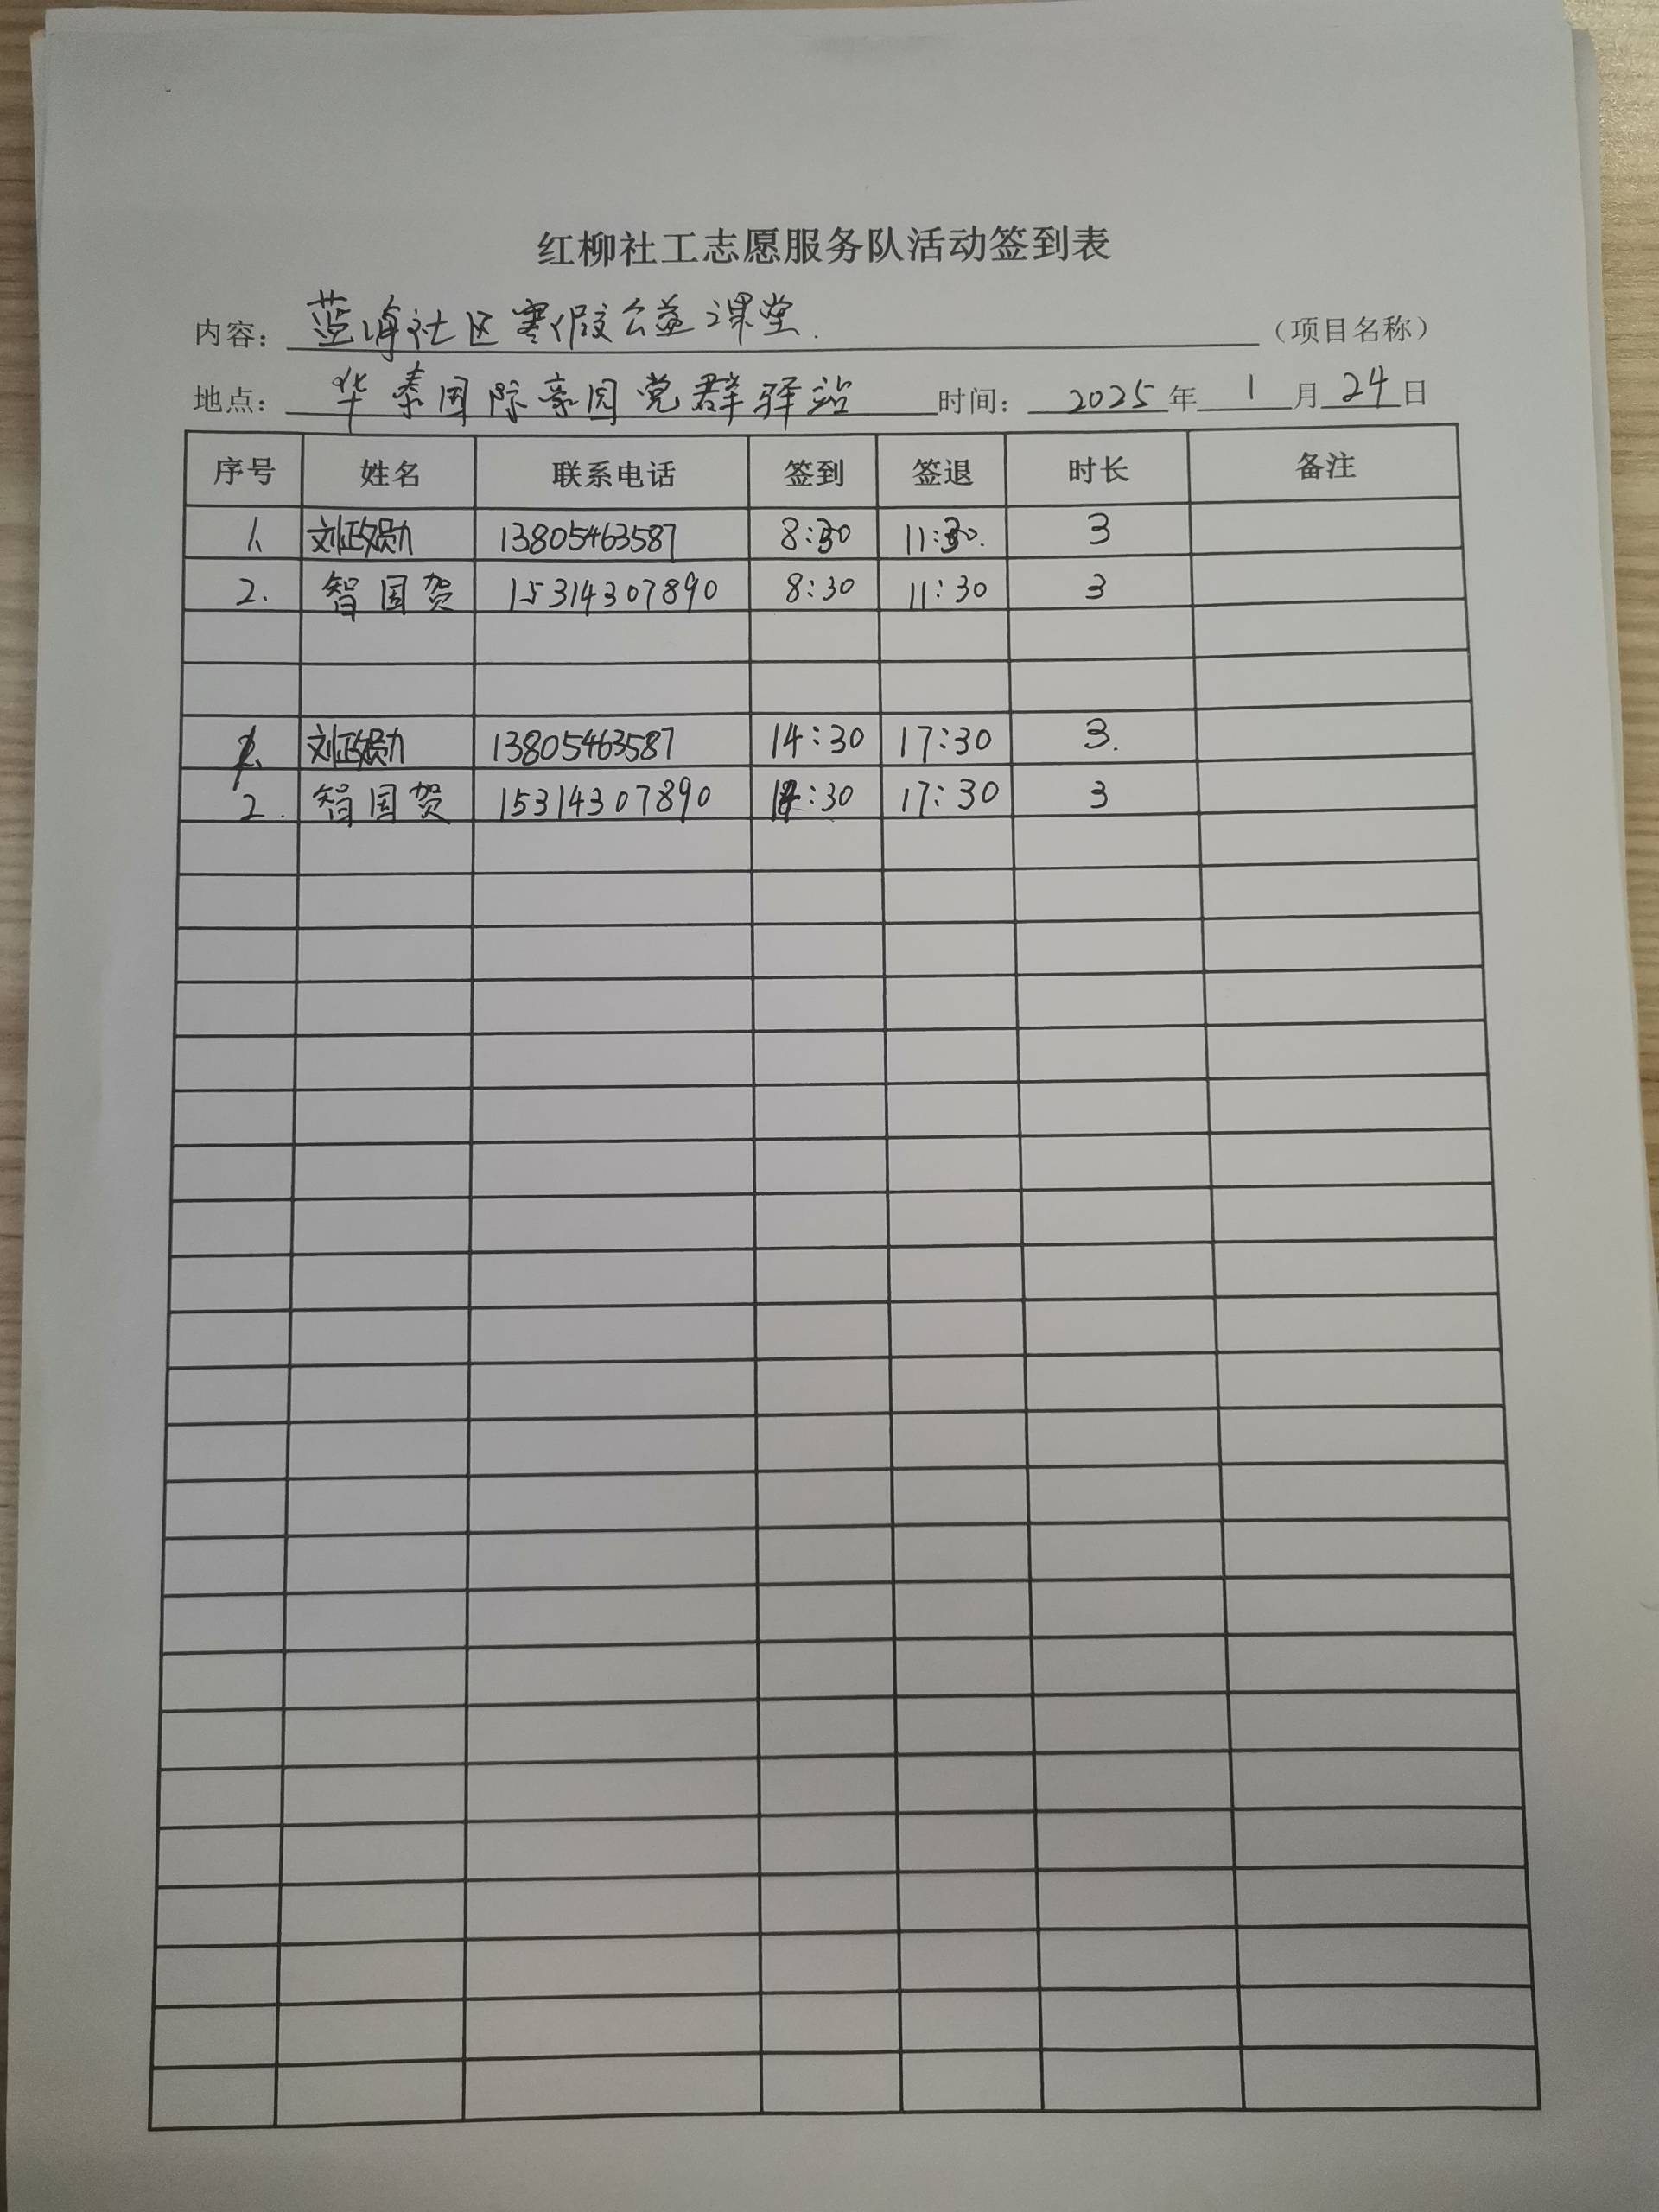 红柳社工志愿服务队活动签到表
内容：蓝海社区寒假公益课堂.（项目名称）
地点：华泰国际豪园党群驿站 时间：2025年1月24日
序号 姓名 联系电话 签到 签退 时长 备注
1、 刘政勋 13805463587 8:30 11:30. 3
2. 智国贺 15314307890 8:30 11:30 3
1、 刘政勋 13805463587 14:30 17:30 3.
2. 智国贺 15314307890 14:30 17:30 3